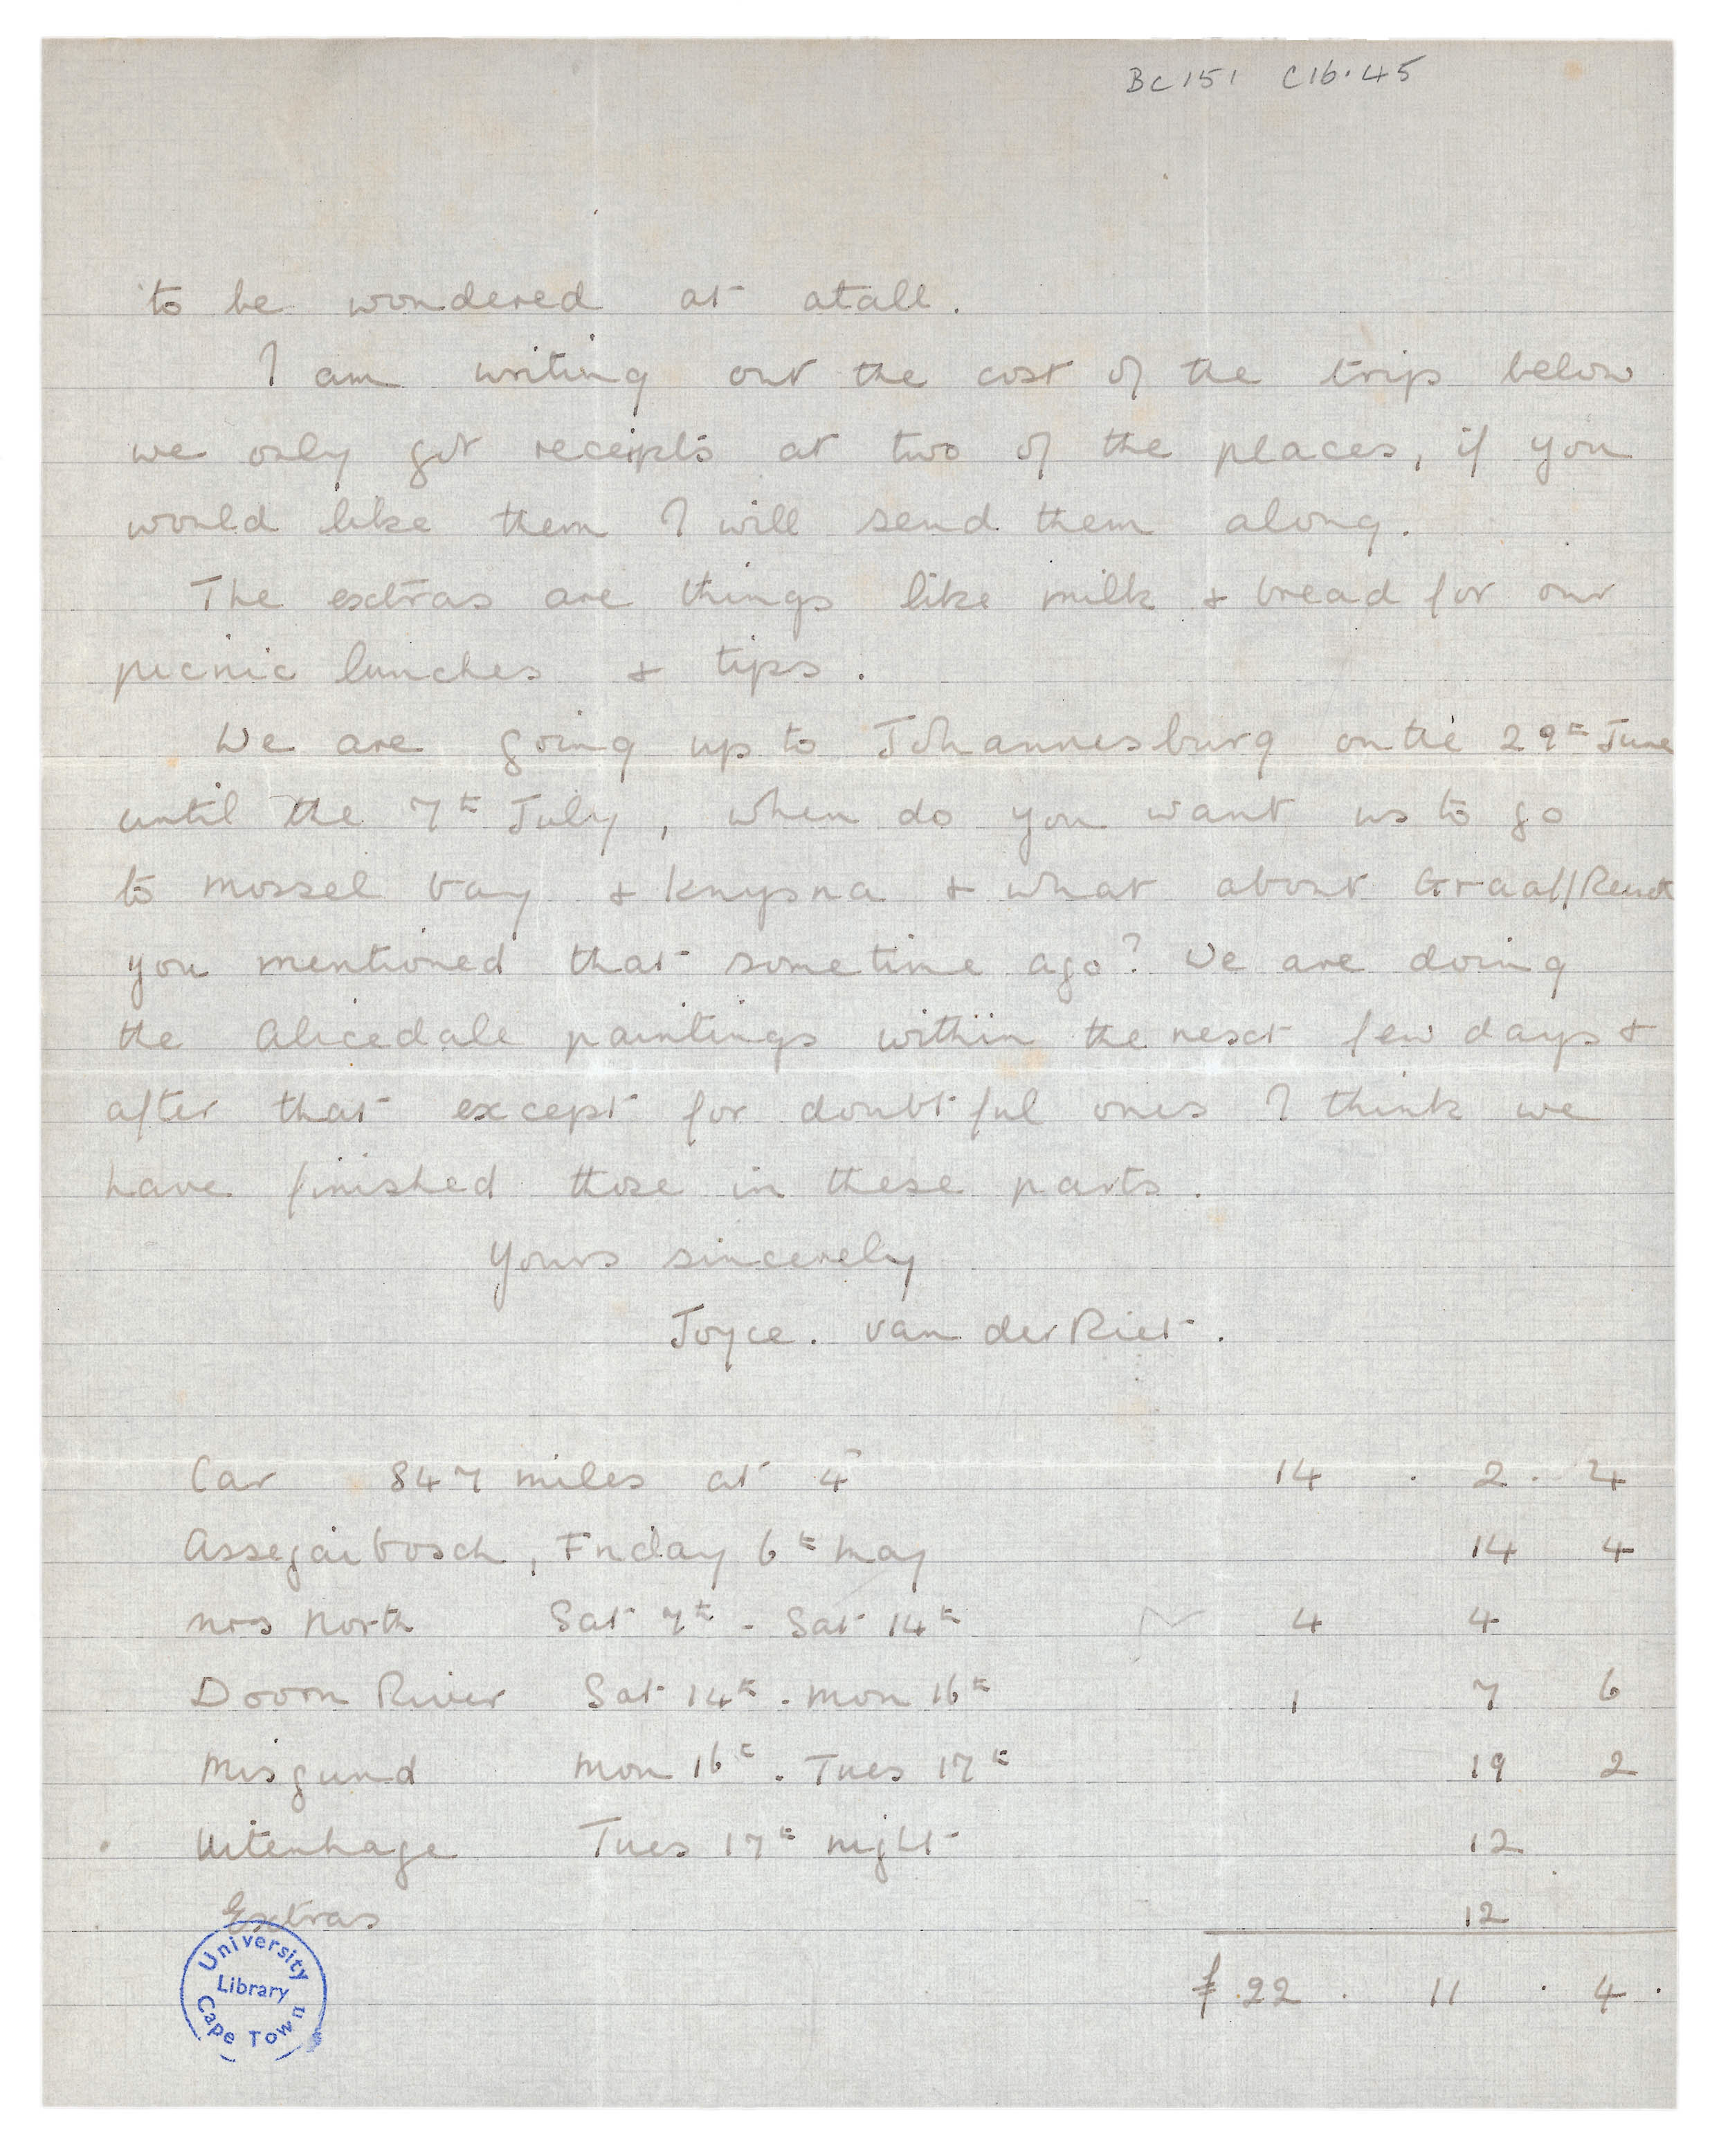 BC151 C16.45
to be wondered at atall.
I am writing out the cost of the trip below
we only got receipts at two of the places, if you
would like them I will send them along.
The extras are things like milk & bread for our
picnic lunches & tips.
We are going up to Johannesburg on the 29th June
until the 7th July, when do you want us to go
to Mossel bay & Knysna & what about Graaff Reinet
you mentioned that sometime ago? We are doing
the Alicedale paintings within the next few days &
after that except for doubtful ones I think we
have finished those in these parts.
Yours sincerely
Joyce. van der Riet.
Car 847 miles at 4 14 . 2 . 4
Assegaibosch, Friday 6th May 14 4
Mrs North Sat 7th - Sat 14th 4 4
Doorn River Sat 14th . Mon 16th 1 7 6
Misgund Mon 16th . Tues 17th 19 2
Uitenhage Tues 17th night 12
Extras 12
£ 22 . 11 . 4 .
University Library Cape Town